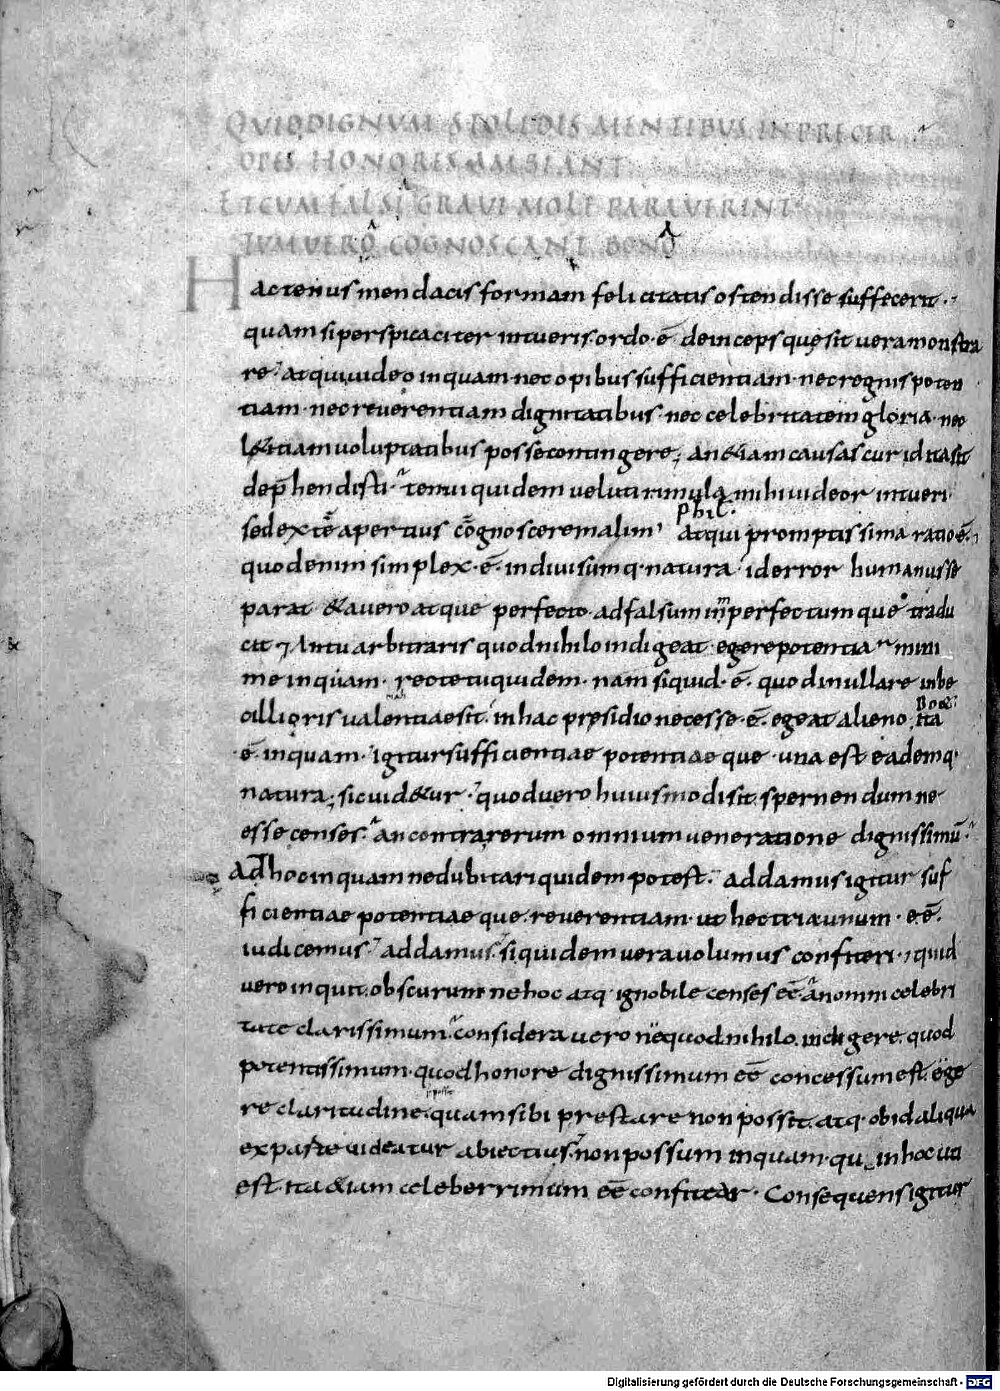 QUID DIGNUM STOLIDIS MENTIBUS INPRECER
OPES HONORES AMBIANT
ET CUM FALSA GRAVI MOLE PARAVERINT
TUM UERA COGNOSCANT BONA
Hactenus mendacis formam felicitatis ostendisse suffecerit.
quam si perspicaciter intueris. ordo. ē. deinceps quę sit uera monstra
re. atqui uideo inquam nec opibus sufficientiam. nec regnis poten
tiam. nec reuerentiam dignitatibus. nec celebritatem gloria. nec
l&itiam uoluptatibus posse contingere; an &iam causas cur id ita sit
dep̄hendisti. tenui quidem ueluti rimula mihi uideor intueri.
Phil.
sed ex te apertius cognoscere malim. Atqui promptissima ratio ē.
quod enim simplex. ē. indiuisumq. natura. id error humanus se
parat. & a uero atque perfecto. ad falsum imperfectumque tradu
cit. An tu arbitraris quod nihilo indigeat egere potentia mini
me inquam. recte tu quidem. nam si quid. ē. quod in ulla re inbe
Boet.
cillioris ualentiae sit. in hac presidio necesse. ē. egeat alieno. ita
ē. inquam. igitur sufficientiae potentiae que. una est eademq.
natura; sic uid&ur. quod uero huiusmodi sit. spernendum ne
esse censes. an contra rerum omnium ueneratione dignissimū.
Ad hoc inquam ne dubitari quidem potest. addamus igitur suf
ficientiae potentiae que. reuerentiam. ut hec tria unum. eē.
iudicemus. addamus. si quidem uera uolumus confiteri. quid
uero inquit. obscurum ne hoc atq. ignobile censes eē. an omni celebri
tate clarissimum. considera uero ne quod nihilo. indigere. quod
potentissimum. quod honore dignissimum eē concessum est. ege
re claritudine. quam sibi prestare non possit. atq. ob id aliqua
ex parte uideatur abiectius. non possum inquam. qu in hoc uti
est. ita &iam celeberrimum eē confitear. Consequens igitur
Digitalisierung gefördert durch die Deutsche Forschungsgemeinschaft - DFG